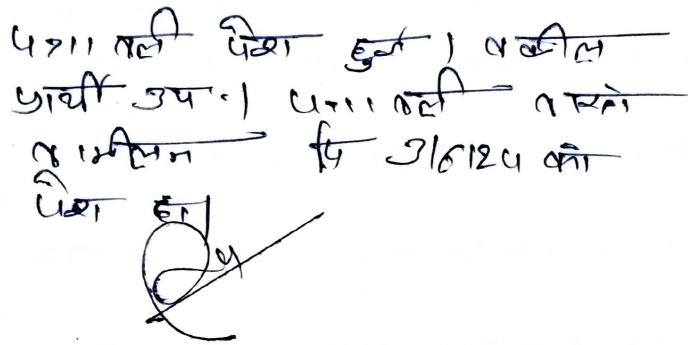 पत्रावली पेश हुई । वकील
प्रार्थी उप.। पत्रावली वास्ते
तामील दि 3/6/24 को
पेश हो।